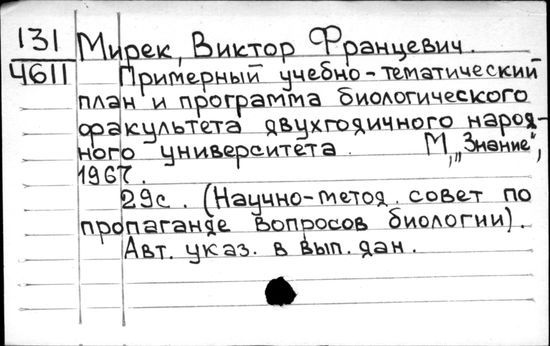 131
4611
Мирек, Виктор Францевич.
Примерный учебно-тематический
план и программа биологического
факультета двухгодичного народ-
ного университета. М., "Знание",
1967.
29с. (Научно-метод. совет по
пропаганде вопросов биологии).
Авт. указ. в вып. дан.